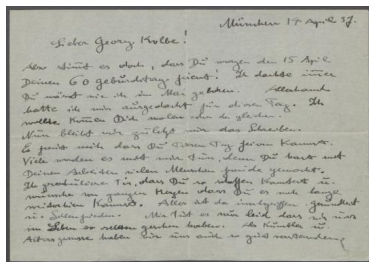 München 14 April 37.
Lieber Georg Kolbe!
Also stimmt es doch, dass Du morgen den 15 April
Deinen 60 geburtstag feierst! Ich dachte immer
Du wärst wie ich im Mai geboren. Allerhand
hatte ich mir ausgedacht für diesen Tag. Ich
wollte kommen Dich malen oder
Nun bleibt mir zuletzt nur das Schreiben.
Es freut mich dass Du diesen Tag feiern kannst.
Viele werden es mit mir tun, denn Du hast mit
Deinen Arbeiten vielen Menschen freude gemacht.
Ich gratuliere Dir, dass Du so schaffen konntest u.
wünsche von ganzem Herzen dass Du es noch lange
weiterhin kannst. Alles ist da
u. Mir tut es nur leid dass wir uns
im Leben so selten gesehen haben. Als Künstler u.
Altersgenosse haben wir uns auch so gut verstanden